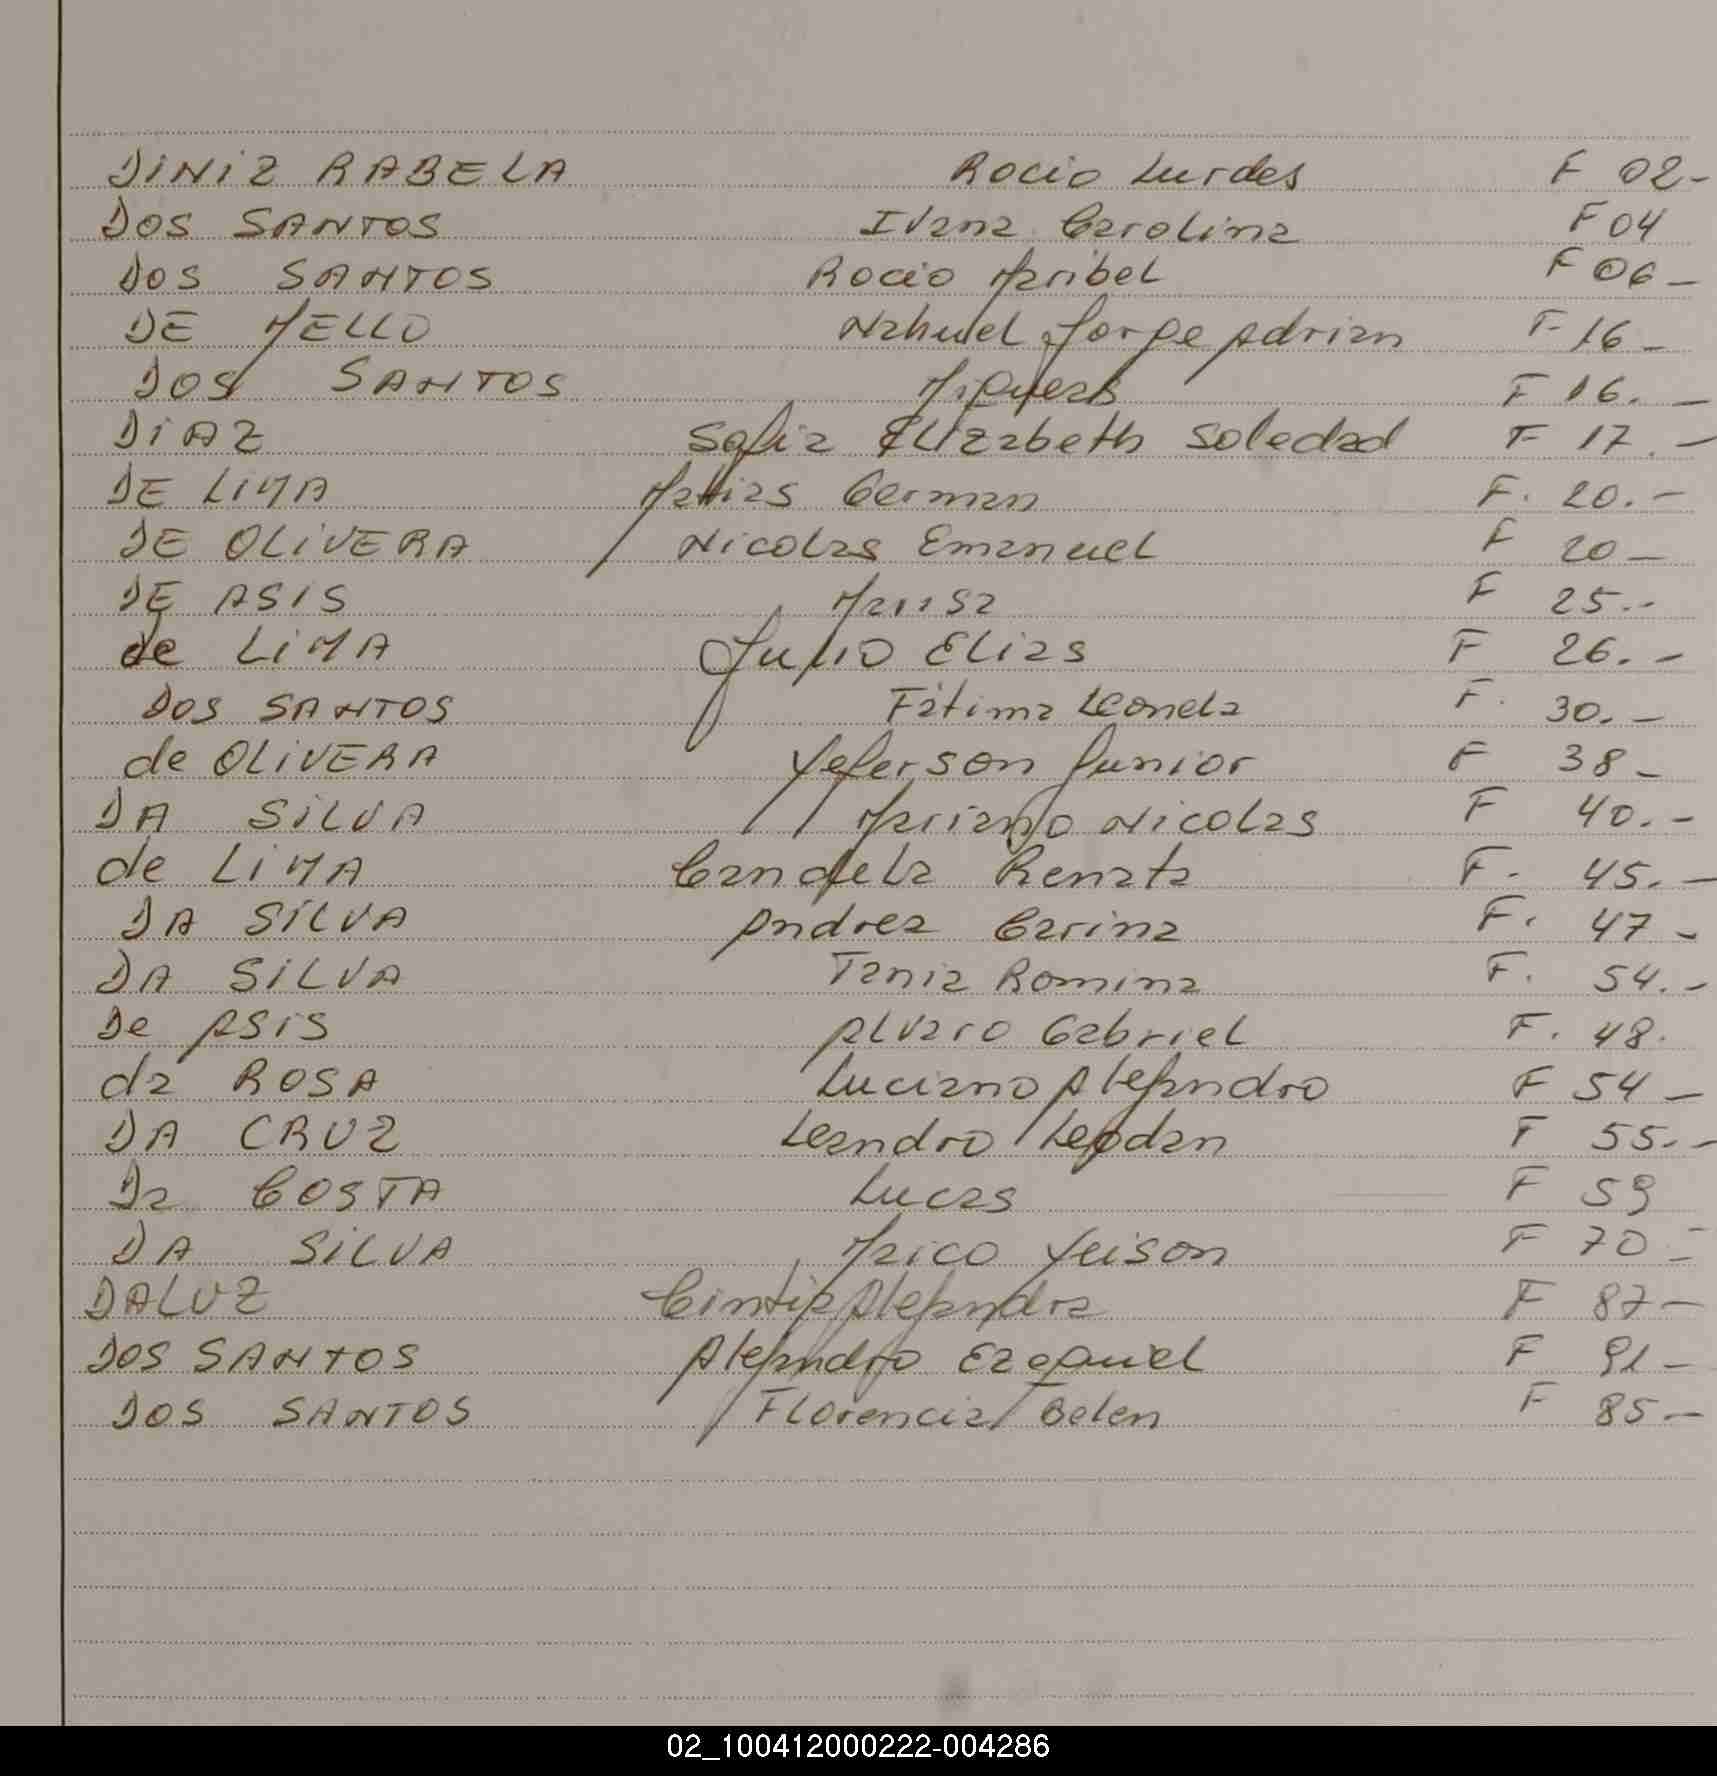 DINIZ RABELA Rocio Lurdes F 02-
DOS SANTOS Ivana Carolina F 04
DOS SANTOS Rocio Maribel F 06-
DE MELLO Nahuel Jorge Adrian F 16-
DOS SANTOS F 16.-
DIAZ Sofia Elizabeth Soledad F 17.-
DE LIMA Matias German F. 20.-
DE OLIVERA Nicolas Emanuel F 20-
DE ASIS F 25.-
de LIMA Julio Elias F 26.-
DOS SANTOS Fátima Leonela F. 30.-
de OLIVERA Yeferson Junior F 38-
DA SILVA Mariano Nicolas F 40.-
de LIMA Candela Renata F. 45.-
DA SILVA Andrea Carina F. 47-
DA SILVA Tania Romina F. 54.-
De ASIS Alvaro Gabriel F. 48.
da ROSA Luciano Alejandro F 54-
DA CRUZ Leandro F 55.-
Da COSTA Lucas F 59
DA SILVA Marco Yeison F 70.-
DALUZ Cintia Alejandra F 87-
DOS SANTOS Alejandro Ezequiel F 91-
DOS SANTOS Florencia Belen F 85-
02_100412000222-004286